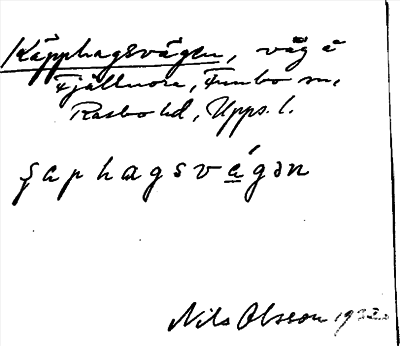 Käpphagsvägen, väg å
Fjällmora, Funbo sn,
Rasbo hd, Upps. l.
ɕaphagsvá̱gən
Nils Olsson 1932.